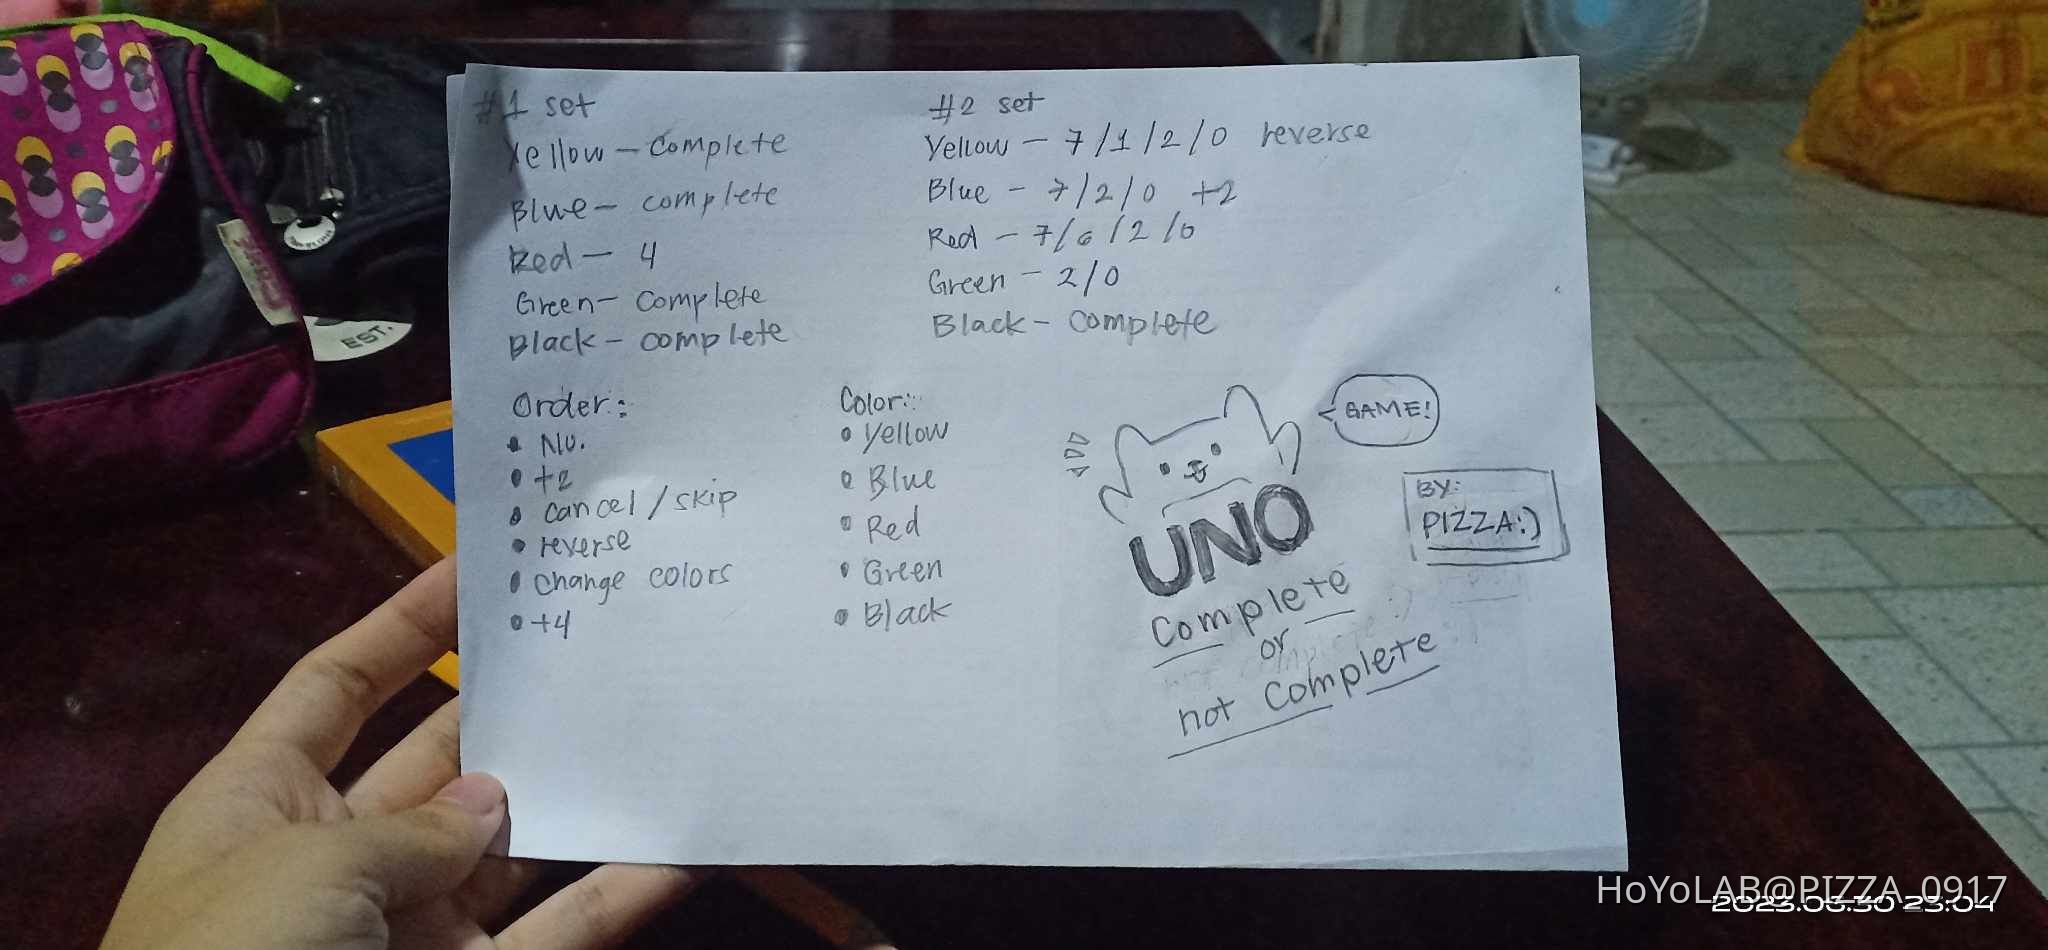 #1 set
Yellow – complete
Blue – complete
Red – 4
Green – complete
Black – complete
#2 set
Yellow – 7/1/2/0 reverse
Blue – 7/2/0 +2
Red – 7/6/2/0
Green – 2/0
Black – complete
Order:
• No.
• +2
• cancel/skip
• reverse
• change colors
• +4
Color:
• Yellow
• Blue
• Red
• Green
• Black
GAME!
BY:
PIZZA:)
UNO
Complete
or
not complete
EST.
HoYoLAB@PIZZA_0917